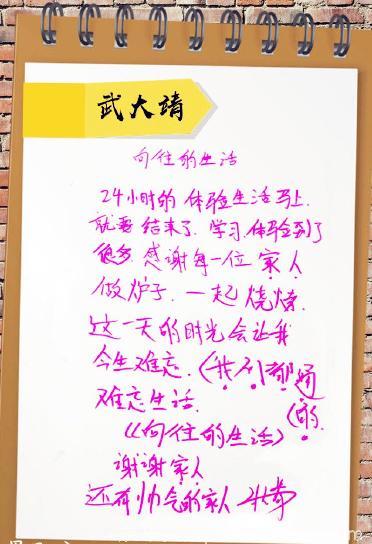 武大靖
向往的生活
24小时的体验生活马上
就要结束了.学习.体验到了
很多 感谢每一位家人
做炉子.一起烧烤.
这一天的时光会让我
今生难忘.(我们都通
难忘生活. (的.
《向往的生活》
谢谢家人
还有帅气的家人